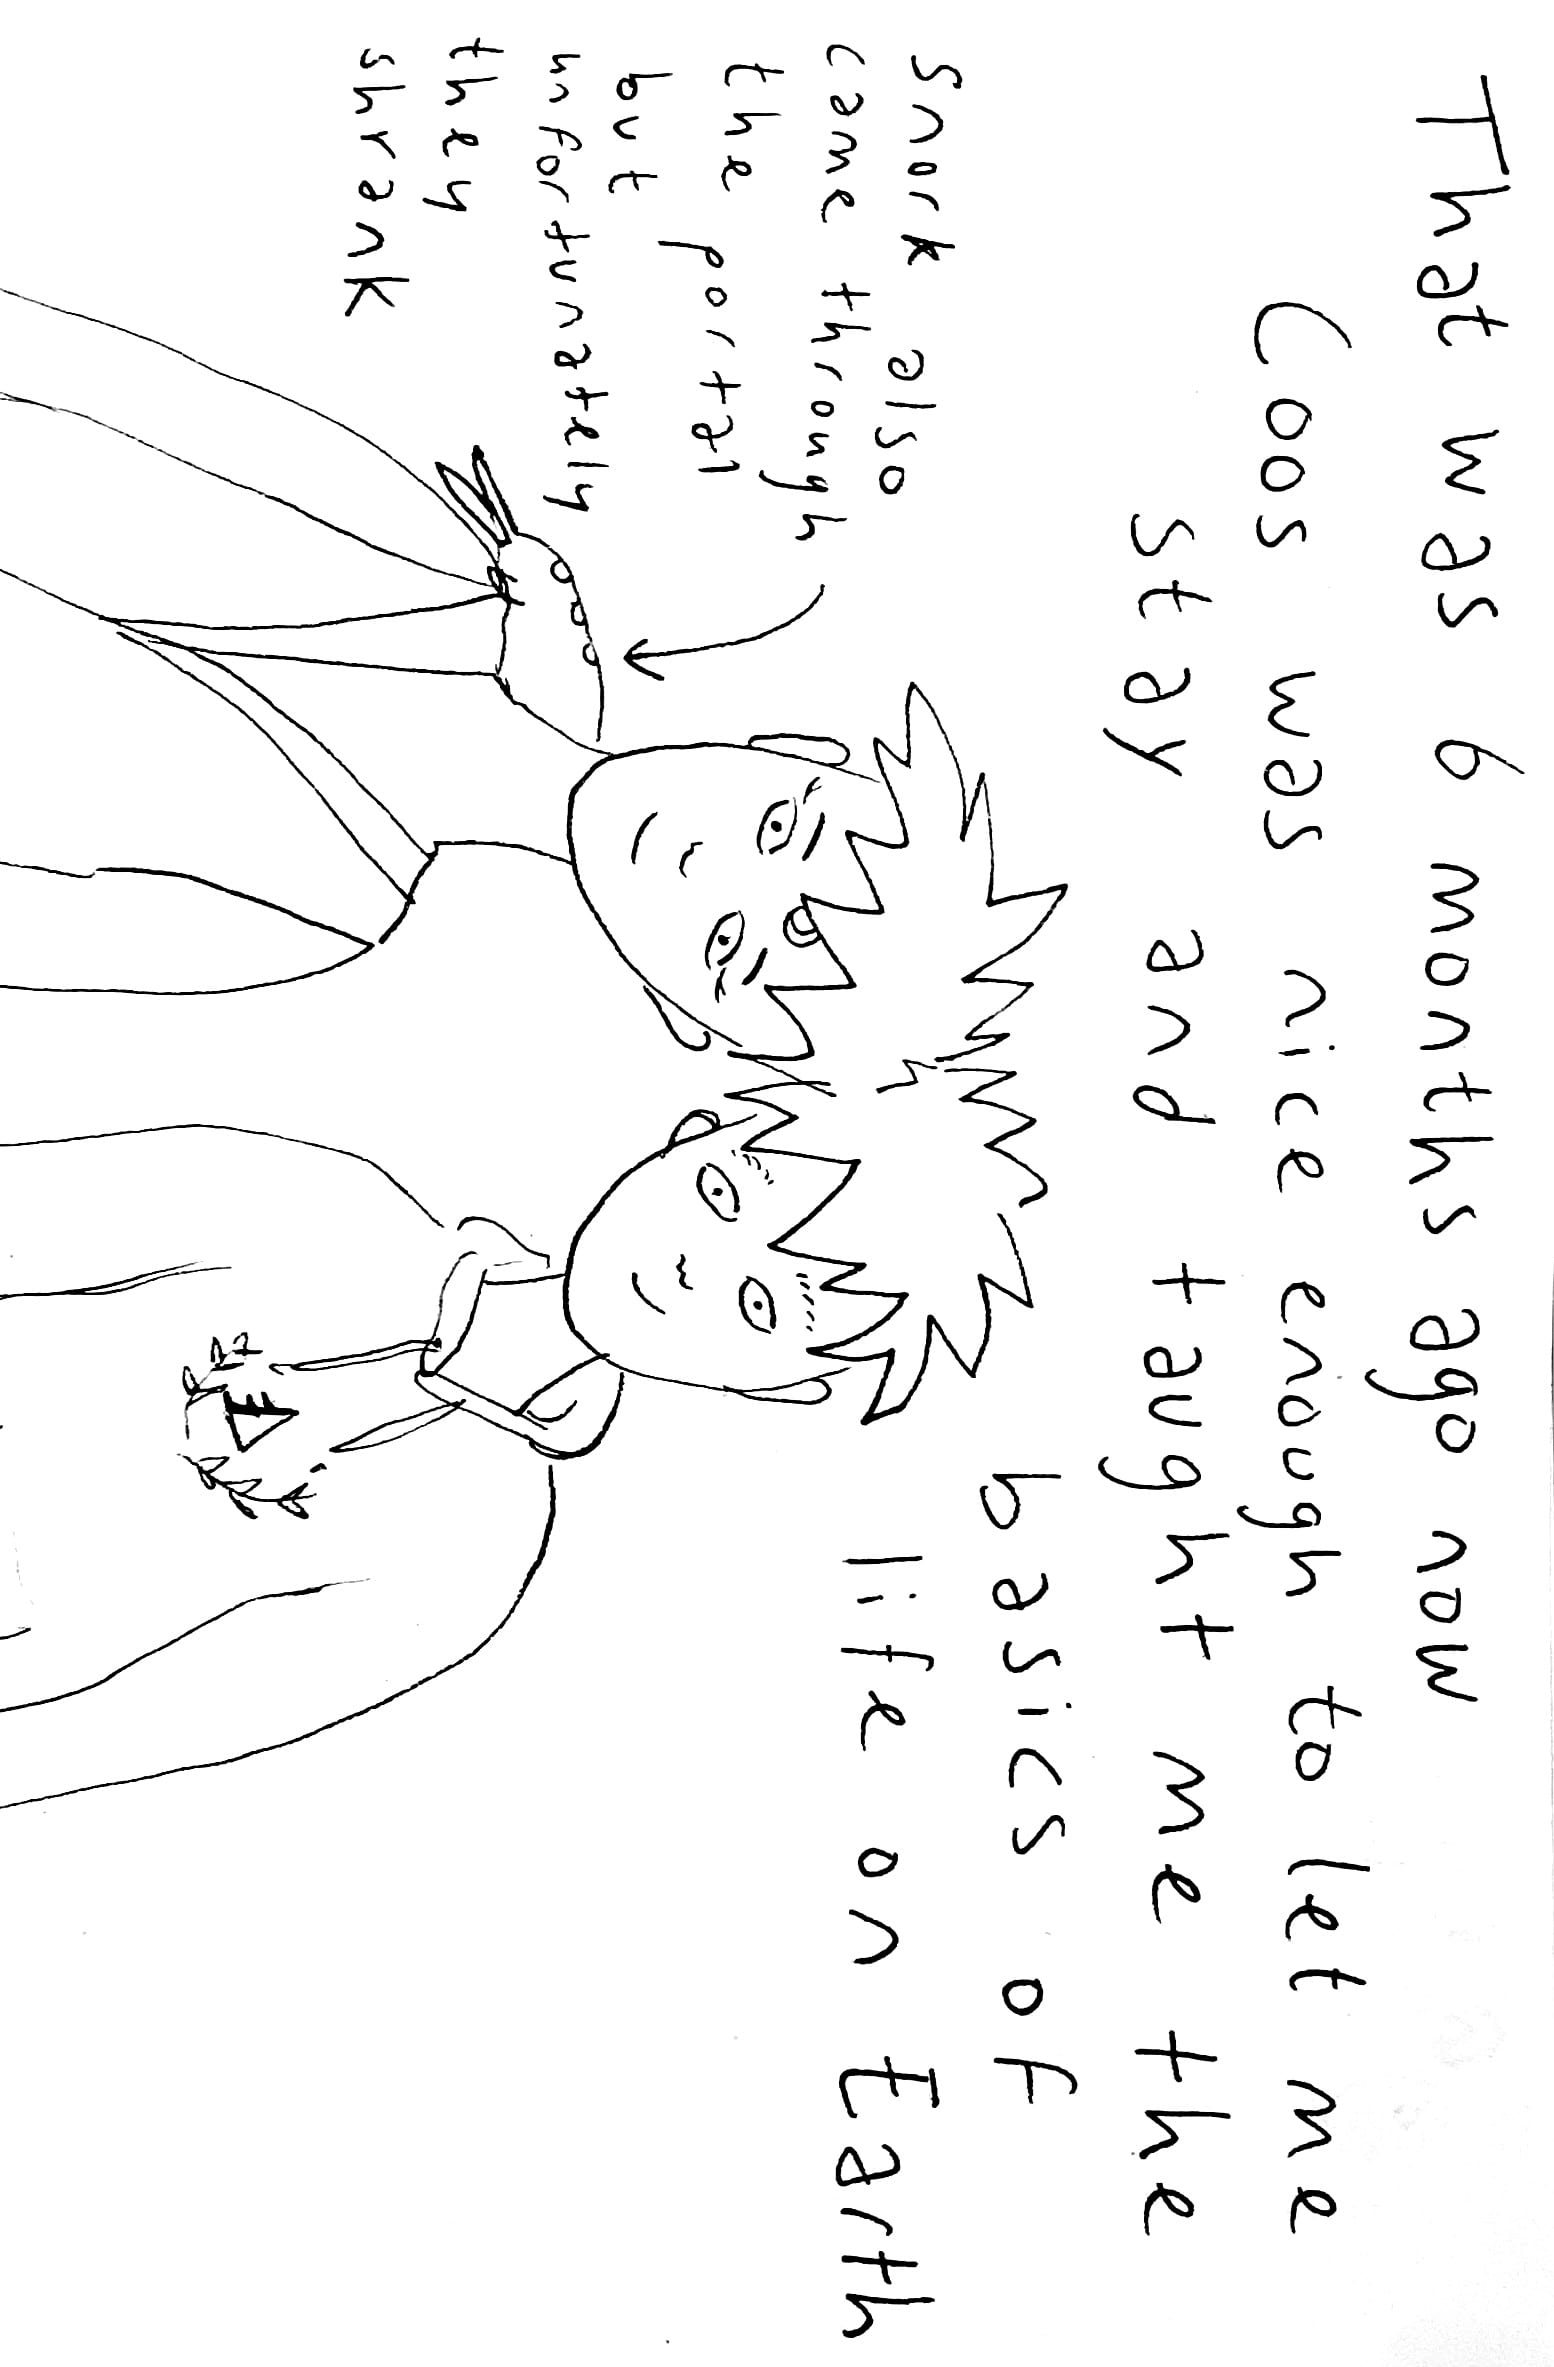 That was 6 months ago now
Coos was nice enough to let me
stay and taught me the
basics of
life on Earth
Snork also
came through
the portal
but
unfortunately
they
shrank